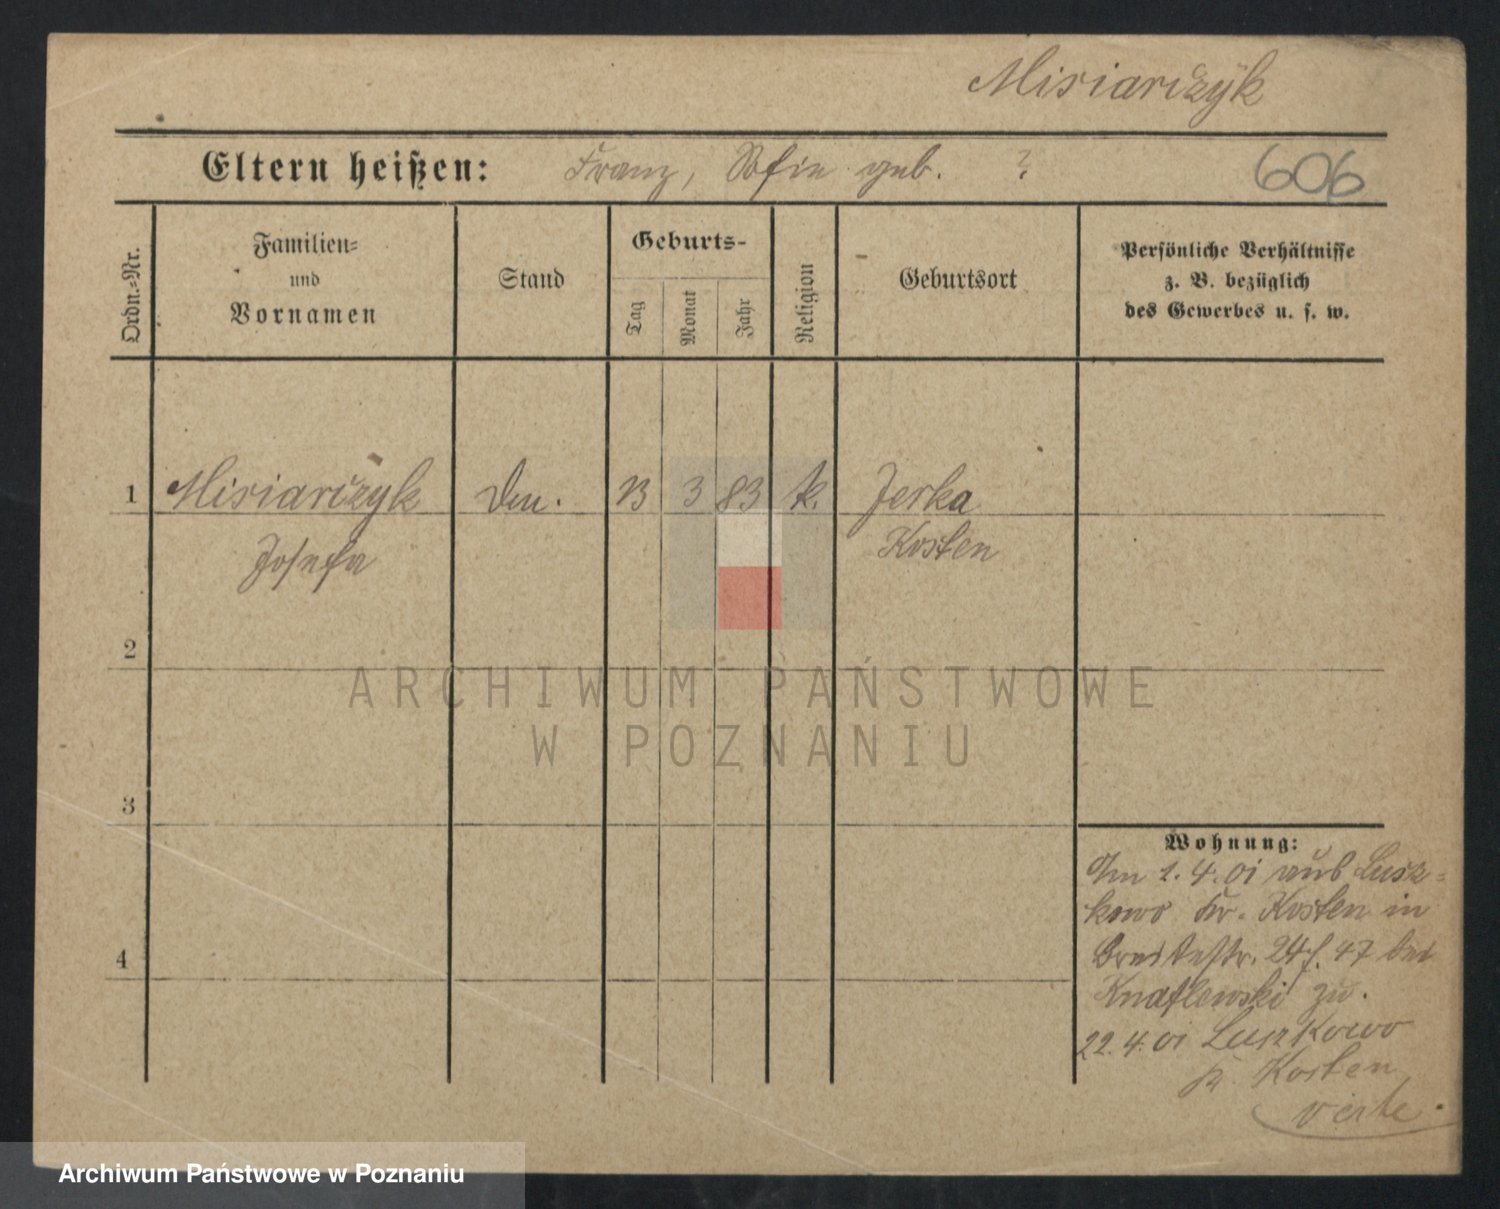 Misiarczyk
Eltern heißen: Franz, Sofie geb. ?
606
Ordn.-Nr.
Familien-
und
Vornamen
Stand
Geburts-
Tag
Monat
Jahr
Religion
Geburtsort
Persönliche Verhältnisse
z. B. bezüglich
des Gewerbes u. s. w.
1 Misiarczyk 3 83 k. Jerka
Josefa Kosten
2
3
4
Wohnung:
Am 1.4.01 aus Lusz-
kowo Kr. Kosten in
Breitestr. 24 47 bei
Knaflewski zu.
22.4.01 Luszkowo
Kosten
verte.
ARCHIWUM PAŃSTWOWE
W POZNANIU
Archiwum Państwowe w Poznaniu